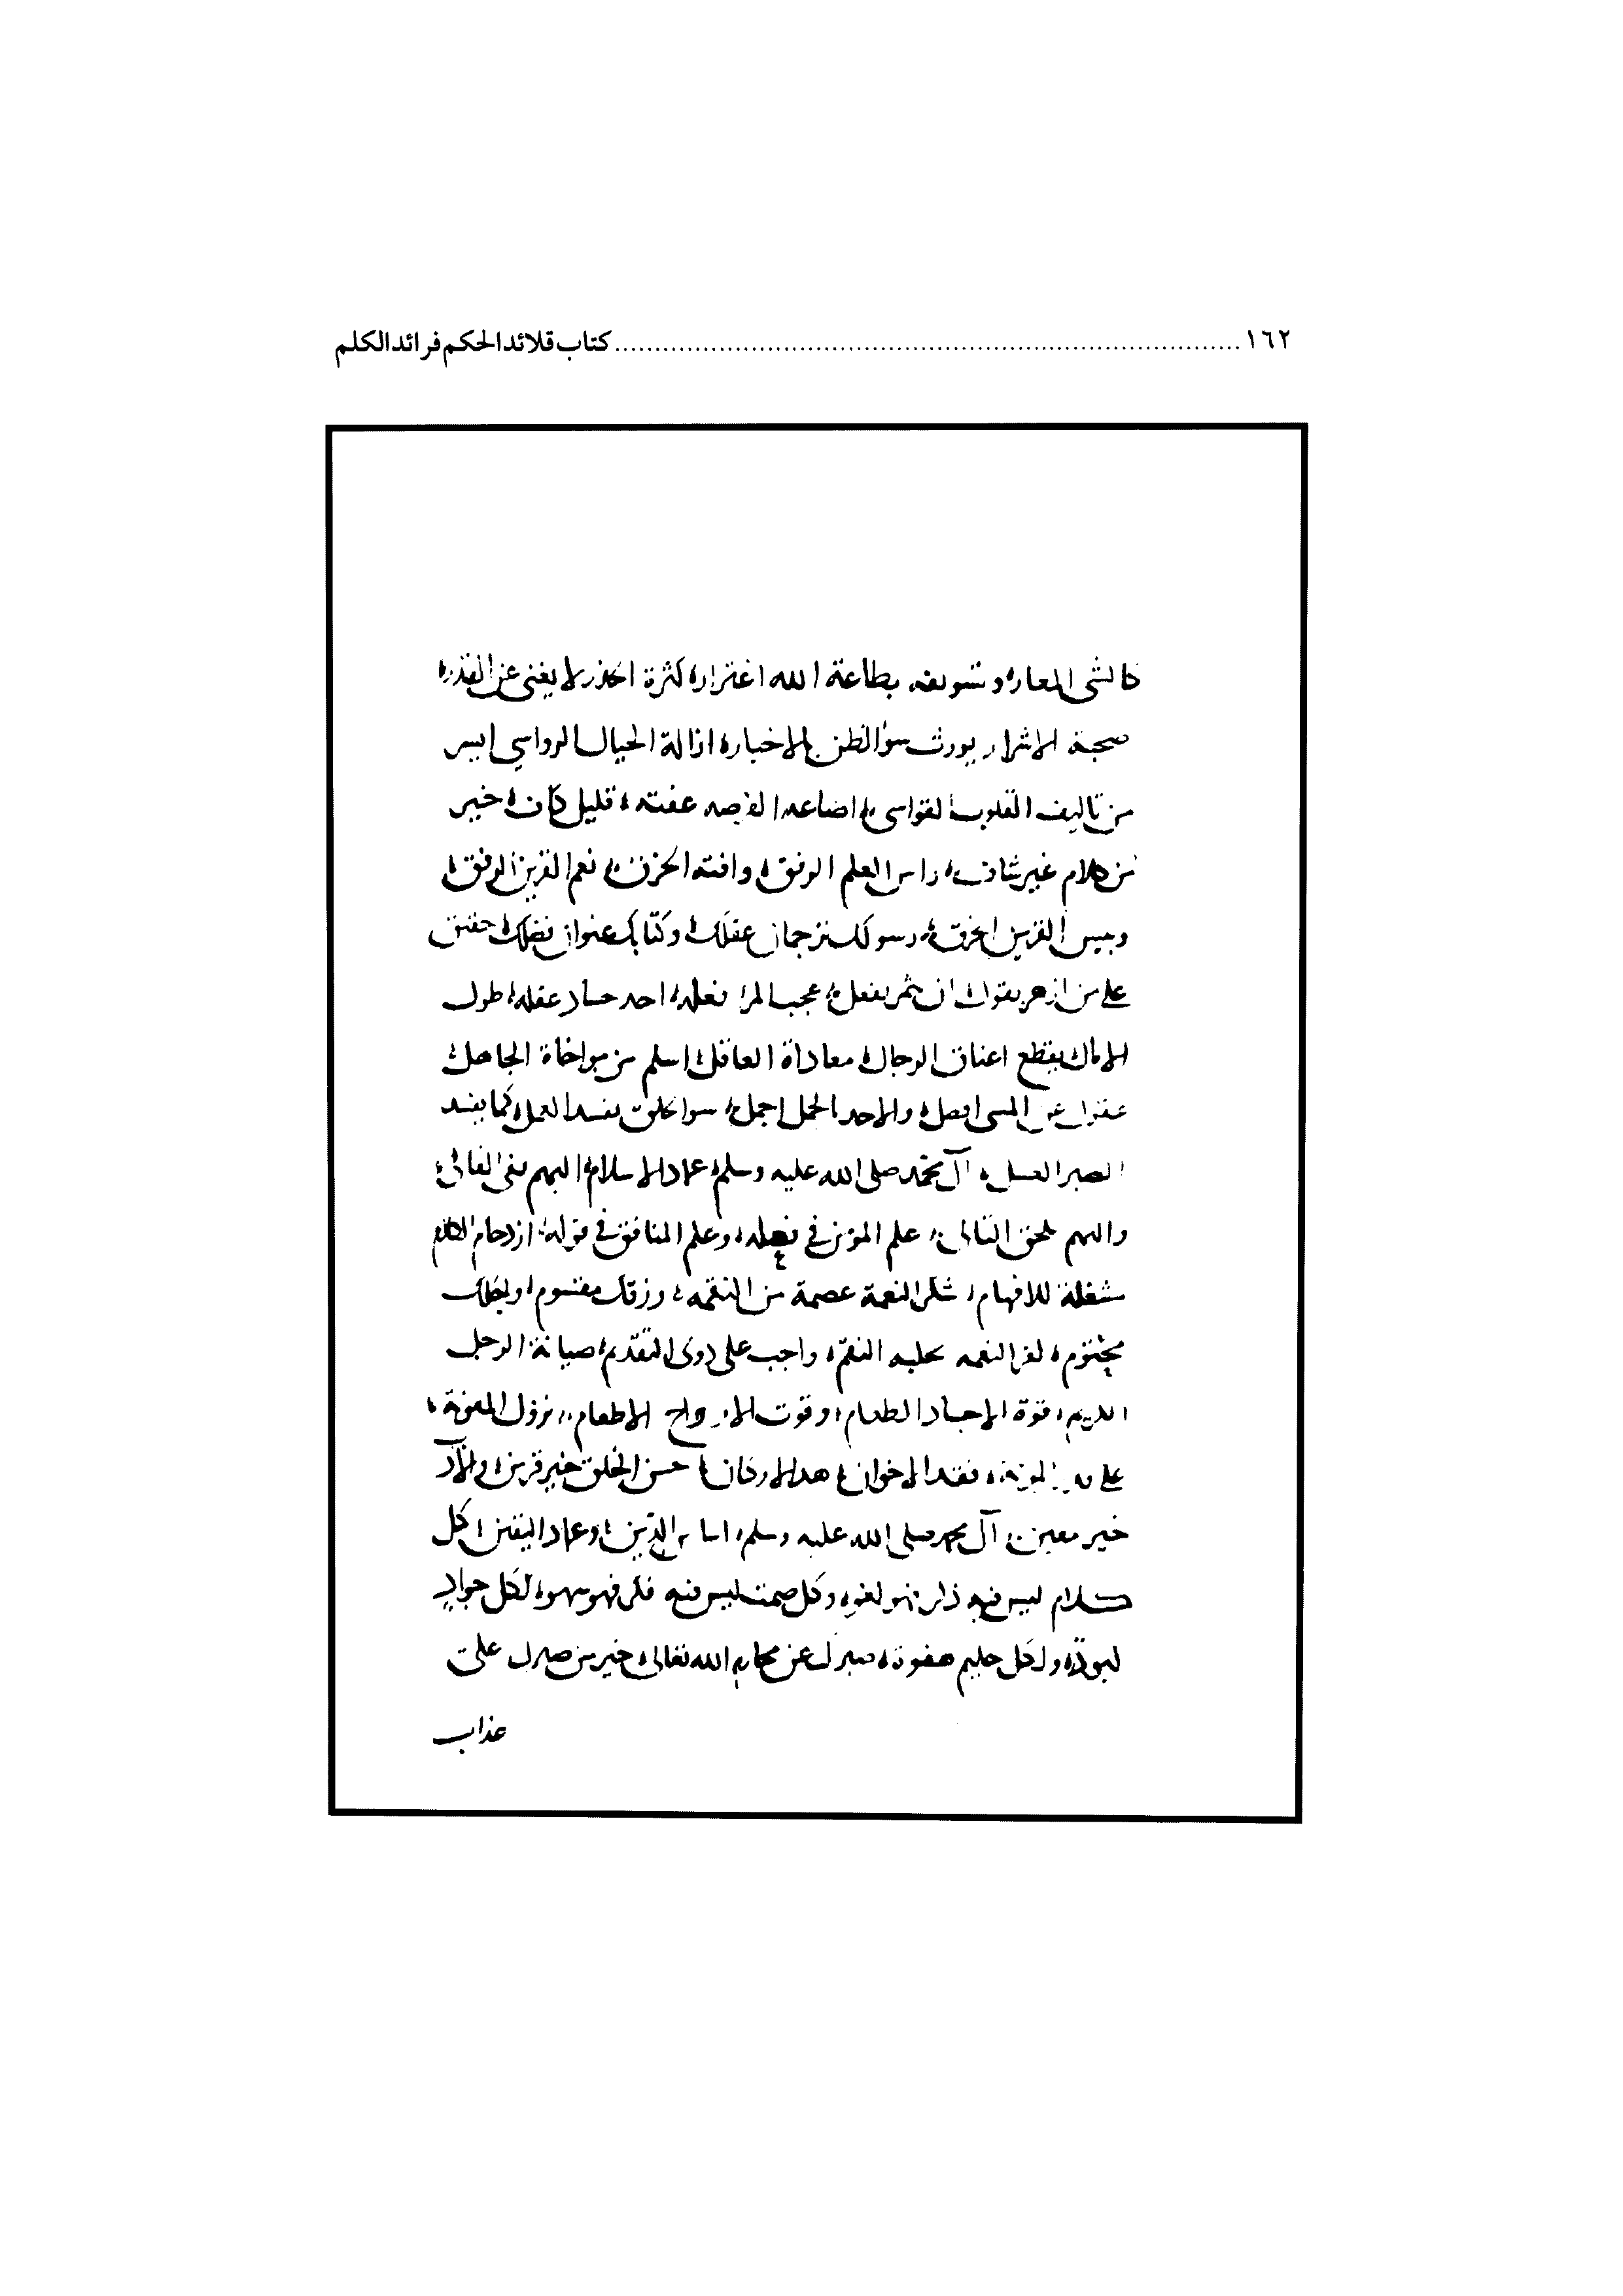 ١٦٢ ........ كتاب قلائد الحكم فرائد الكلم
كالشى المعاره وتسويفه بطاعة الله اغتراره كثرة الحذر لا يغنى عن القدره
صحبة الاشرار يورث سوالظن بالاخياره ازالة الجبال الرواسي ايسر
من تاليف القلوب القواسى اضاعه الفرصه قليل كان خير
من كلام غير شاف راس العلم الرفق وافته الخرق نعم القرين الرفق
وبيس القرين الخرق رسولك ترجمان عقلك وكتابك عنوان فضلك حقيق
على من ازهر بقول ان يثمر بفعل عجب المر بعقله احد حساد عقله طول
الامال يقطع اعناق الرجال معاداة العاقل اسلم من مواخاة الجاهل
عن المسى افضل والاحد الجمل اجمل سوا الخلق يفسد العمل كما يفسد
الصبر العسل آل محمد صلى الله عليه وسلم عماد الاسلام اليهم يفى الغالى
والهم يلحق التالى علم المؤمن في فعله وعلم المنافق في قوله ازدحام الكلام
مشغلة للافهام شكر النعمة عصمة من النقمه رزقك مقسوم
مختوم كفر النعمه يجلبه النقم واجب على ذوى التقديم صيانة الرجل
الكريم قوة الاجساد الطعام وقوت الارواح الاطعام نزول المعونة
على قدر المونه فقد الاخوان هد الاركان حسن الخلق خير قرين
خير معين آل محمد صلى الله عليه وسلم اساس الدين وعماد اليقين كل
كلام ليس فيه ذكر فهو لغو وكل صمت ليس فيه فكر فهو سهو لكل جواد
كبوة ولكل حليم هفوة صبرك عن محارم الله تعالى خير من صبرك على
عذاب